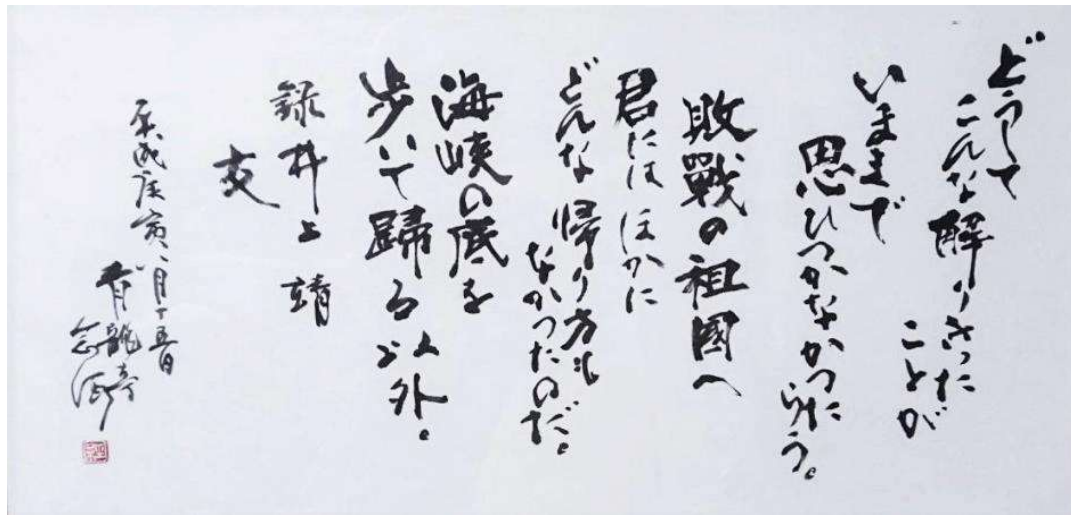 どうして
こんな解りきった
ことが
いままで
思ひつかなかつた
らう。
敗戰の祖國へ
君には ほかに
どんな帰り方も
なかつたのだ。
海峡の底を
歩いて歸る以外。
録井上靖
友
平成庚寅八月十五日
青龍寺